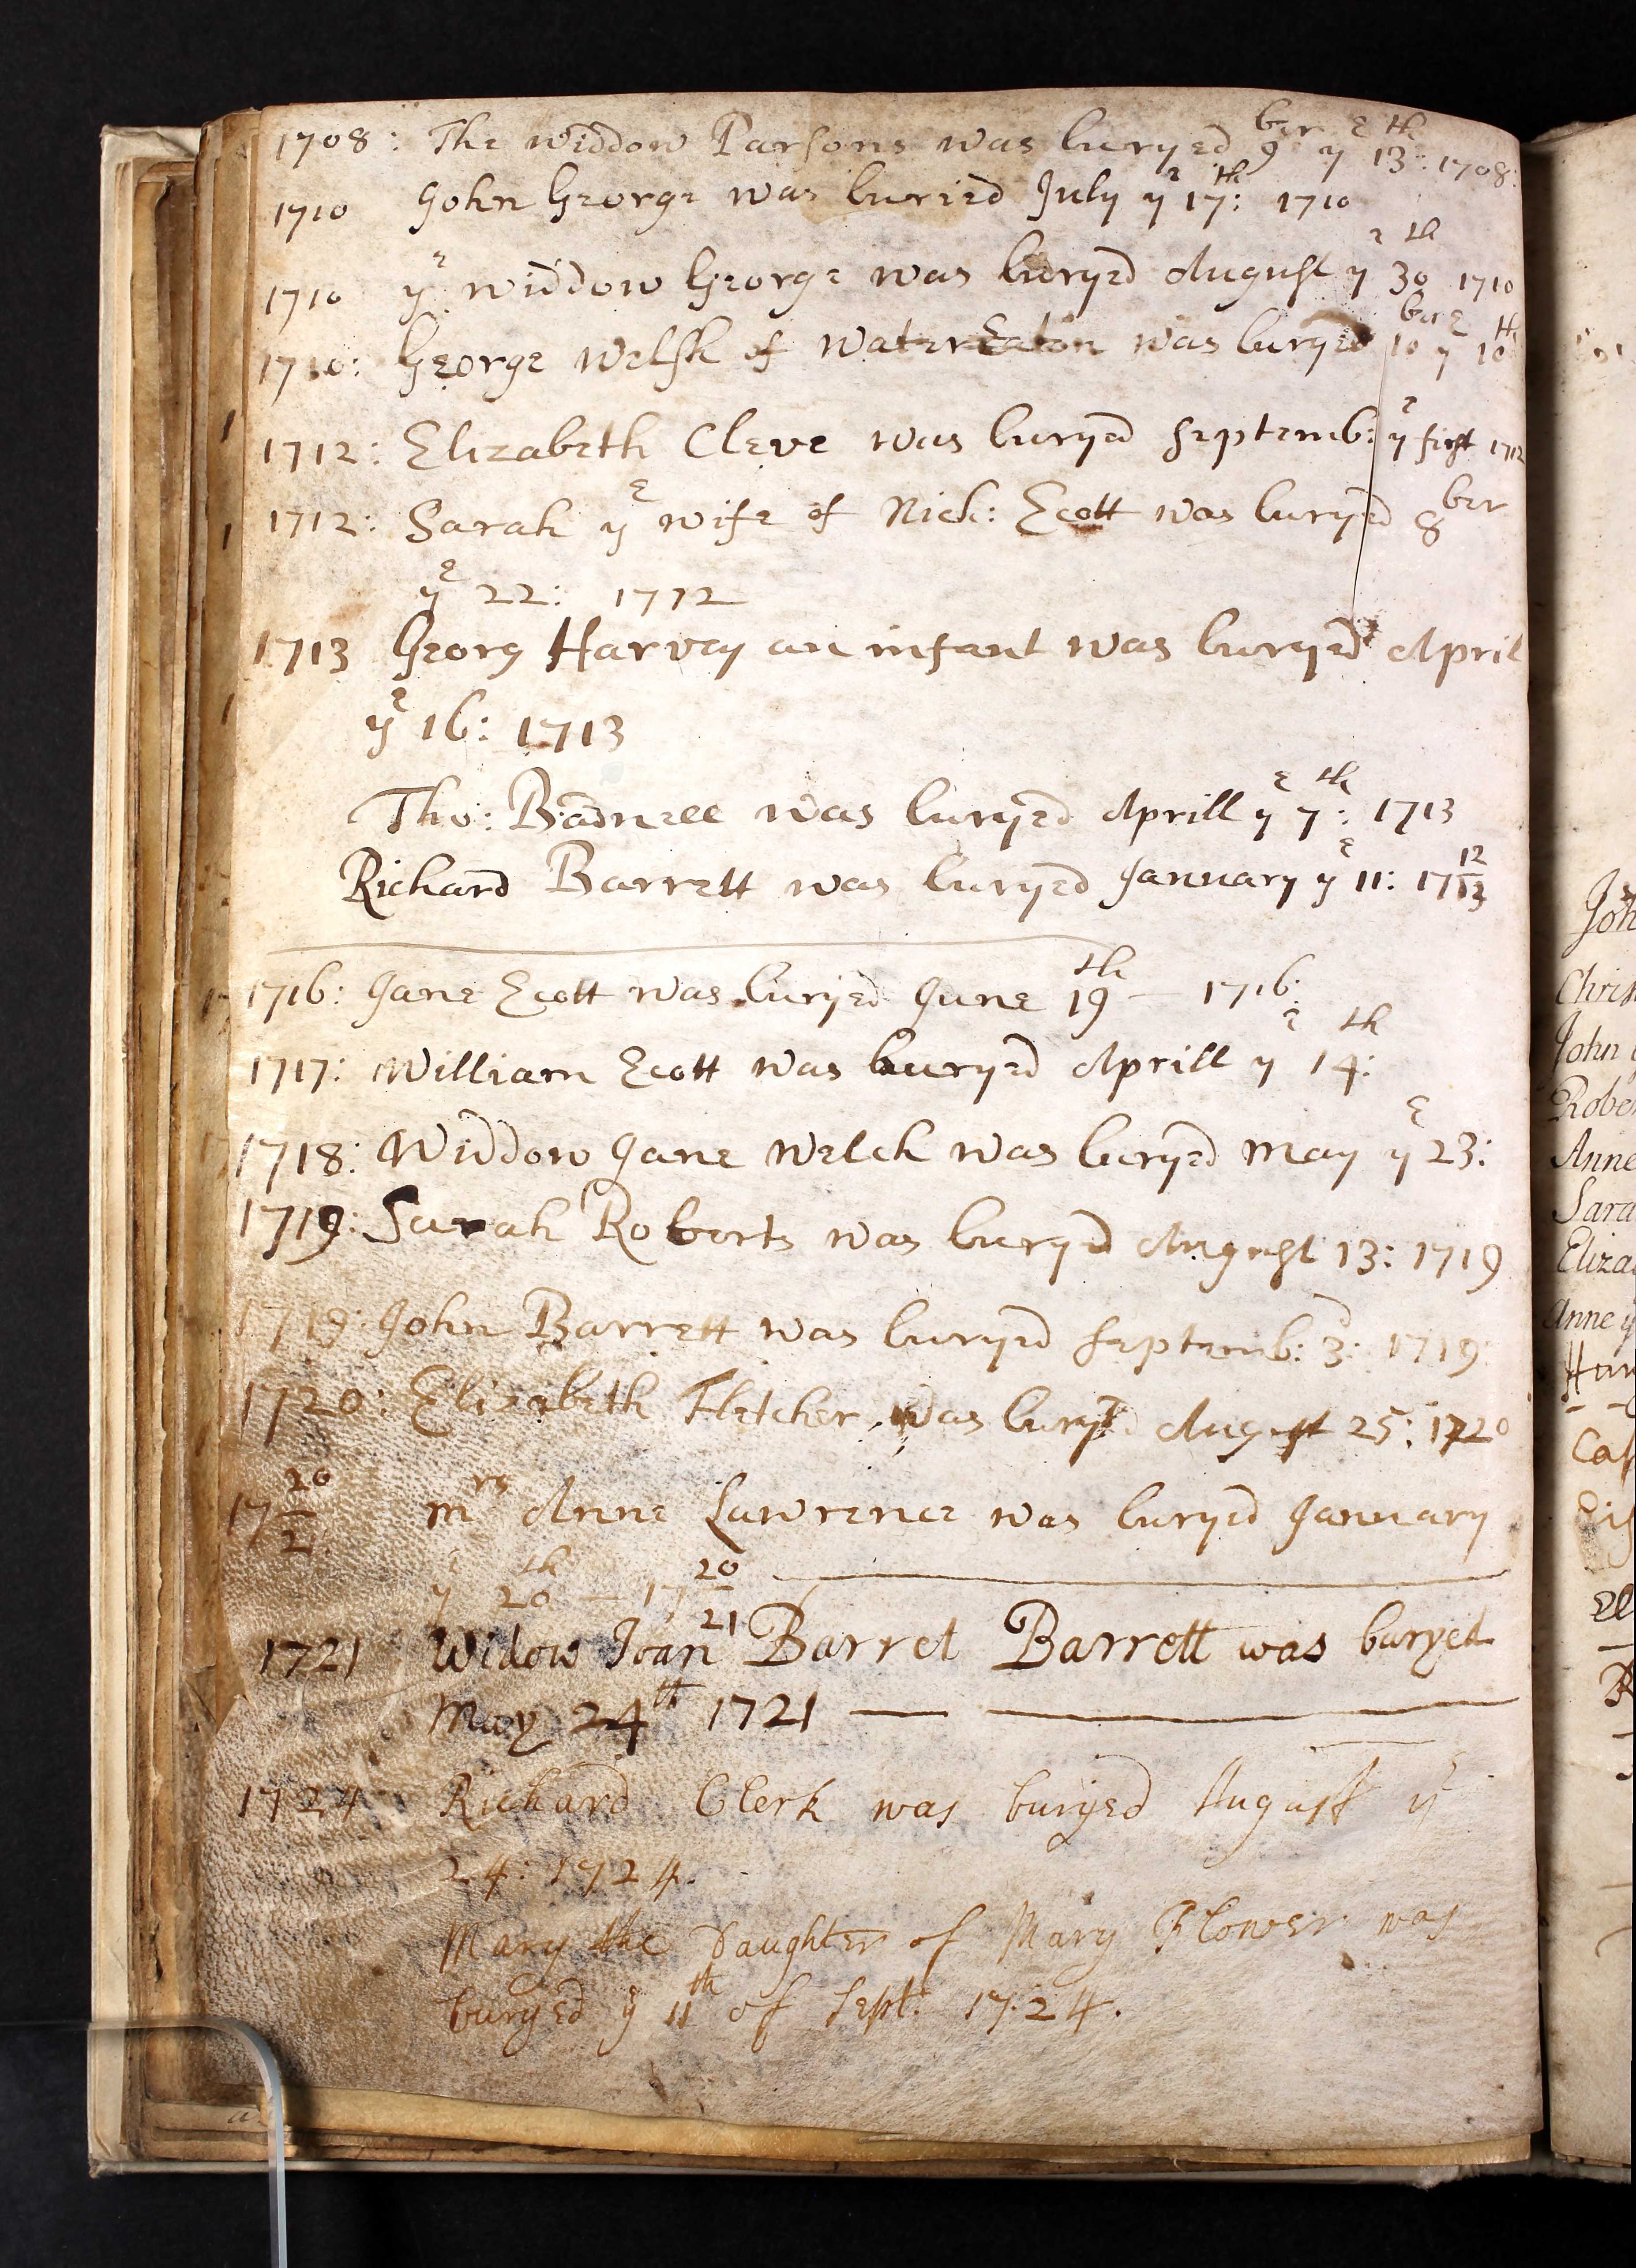 1708: The widdow Parsons was buryed 9ber ye 13th: 1708:
1710 John George was buried July ye 17th: 1710
1710 ye widdow George was buryed August ye 30th 1710
1710: George Welsh of Water Eaton was buryed 10ber ye 10th
1712: Elizabeth Cleve was buryed Septemb: ye first 1712
1712: Sarah ye wife of Nich: Ecott was buryed 8ber
ye 22: 1712
1713 Georg Harvey an infant was buryed April
ye 16: 1713
Tho: Badnell was buryed Aprill ye 7th: 1713
Richard Barrett was buryed January ye 11: 17 12/13
1716: Jane Ecott was buryed June 19th — 1716:
1717: William Ecott was buryed Aprill ye 14th:
1718: Widdow Jane Welch was buryed May ye 23:
1719: Sarah Roberts was buryed August 13: 1719
1719: John Barrett was buryed Septemb: 3d: 1719
1720: Elizabeth Fletcher was buryd August 25: 1720
17 20/21 Mrs Anne Lawrence was buryed January
ye 20th — 17 20/21
1721 Widow Joan Barret Barrett was buryed
May 24th 1721 —
1724 Richard Clerk was buryed August ye
24: 1724.
Mary the Daughter of Mary Flower was
buryed ye 11th of Sept: 1724.
John
Chris
John
Rober
Anne
Sara
Eliza
Anne y